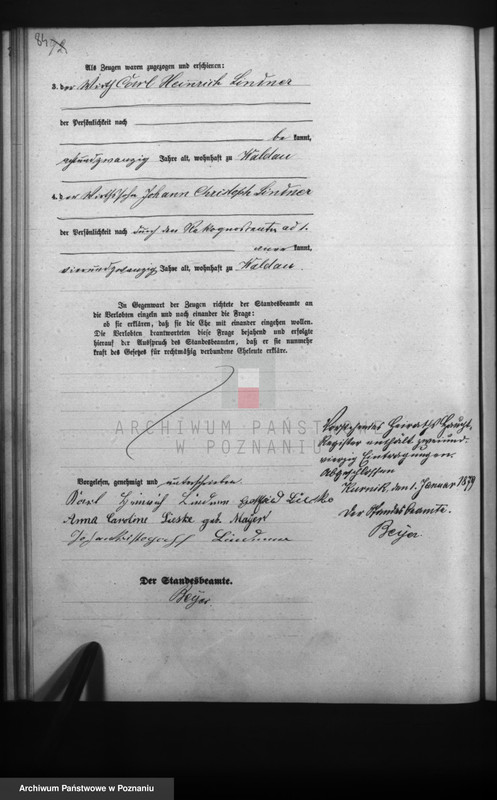 84
Als Zeugen waren zugezogen und erschienen:
3. der Wirth Carl Heinrich Lindner
der Persönlichkeit nach
be kannt,
fünfundzwanzig Jahre alt, wohnhaft zu Waldau
4. der Wirthssohn Johann Christoph Lindner
der Persönlichkeit nach durch den Rekognoscenten ad 1.
kannt,
vierundzwanzig Jahre alt, wohnhaft zu Waldau.
In Gegenwart der Zeugen richtete der Standesbeamte an
die Verlobten einzeln und nach einander die Frage:
ob sie erklären, daß sie die Ehe mit einander eingehen wollen.
Die Verlobten beantworteten diese Frage bejahend und erfolgte
hierauf der Ausspruch des Standesbeamten, daß er sie nunmehr
kraft des Gesetzes für rechtmäßig verbundene Eheleute erkläre.
ARCHIWUM PAŃSTWOWE
W POZNANIU
Vorgelesen, genehmigt und unterschrieben
Karl Heinrich Lindner Gottfried Lieske
Anna Caroline Lieske geb. Mayer
Johann Christoph Lindner
Der Standesbeamte.
Beyer
Vorstehendes Heiraths-Haupt-
Register enthält zweiund-
vierzig Eintragungen.
Abgeschlossen
Kurnik, den 1. Januar 1879
Der Standesbeamte.
Beyer
Archiwum Państwowe w Poznaniu